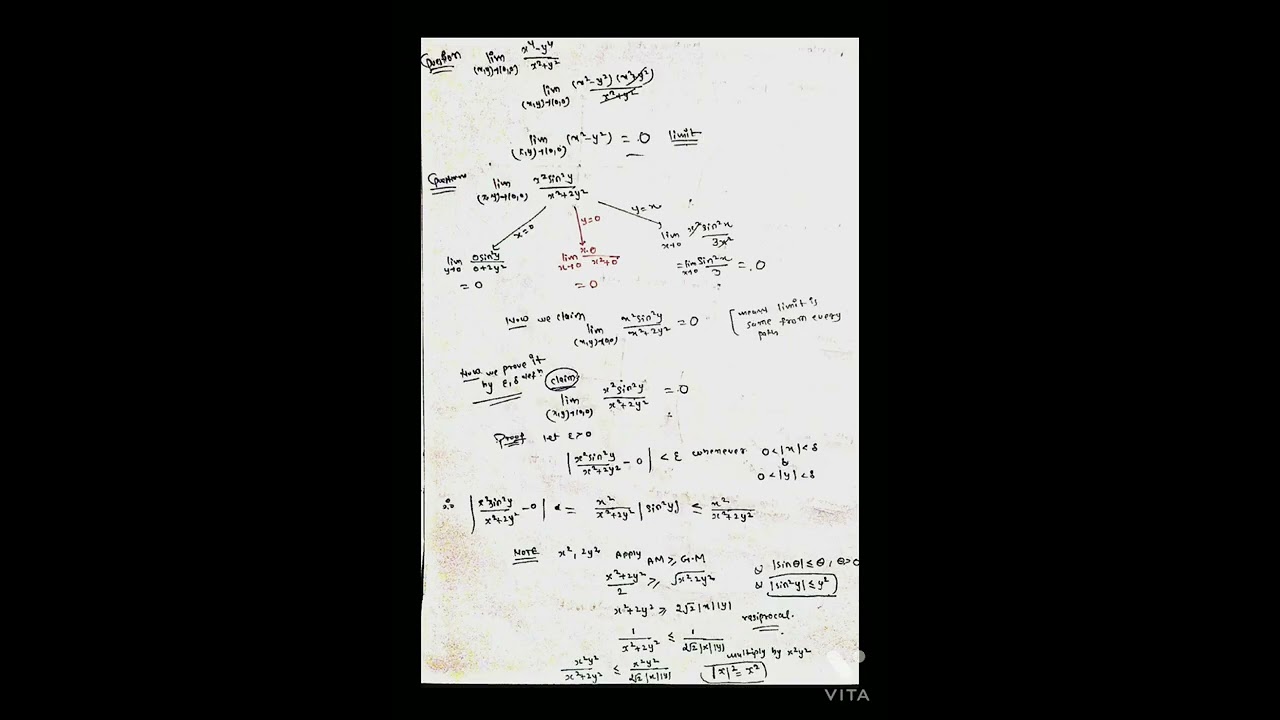 Question lim (x,y)→(0,0) x⁴-y⁴/x²+y²
lim (x,y)→(0,0) (x²-y²)(x²+y²)/x²+y²
lim (x,y)→(0,0) (x²-y²) = 0 limit
Question lim (x,y)→(0,0) x²sin²y/x²+2y²
x=0 y=0 y=x
lim y→0 0sin²y/0+2y² lim x→0 x·0/x²+0 lim x→0 x²sin²x/3x²
= 0 = 0 = lim x→0 sin²x/3 = 0
Now we claim lim (x,y)→(0,0) x²sin²y/x²+2y² = 0 [means limit is
same from every
path
Now we prove it
by ε,δ defⁿ claim
lim (x,y)→(0,0) x²sin²y/x²+2y² = 0
Proof let ε>0
|x²sin²y/x²+2y² - 0| < ε whenever 0<|x|<δ
& 0<|y|<δ
∴ |x²sin²y/x²+2y² - 0| = x²/x²+2y² |sin²y| ≤ x²/x²+2y²
NOTE x², 2y² Apply AM ≥ G.M
x²+2y²/2 ≥ √x²·2y² |sinθ| ≤ θ, θ>0
|sin²y| ≤ y²
x²+2y² ≥ 2√2|x||y|
resiprocal.
1/x²+2y² ≤ 1/2√2|x||y|
multiply by x²y²
x²y²/x²+2y² ≤ x²y²/2√2|x||y| |x|² = x²
VITA